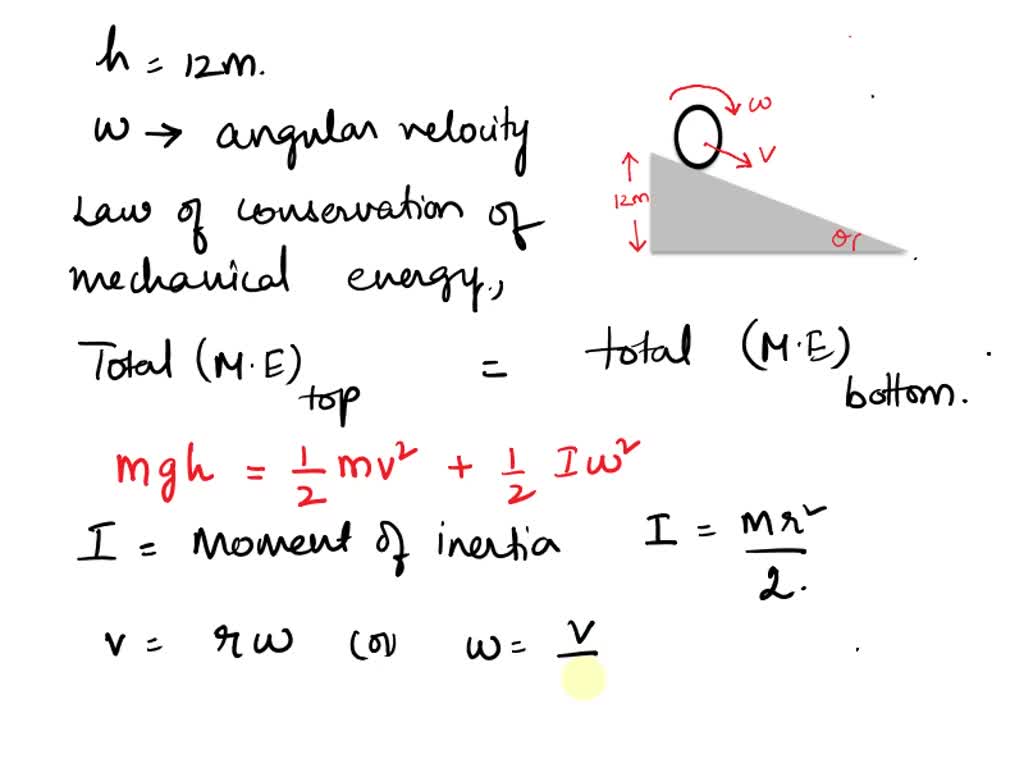 h = 12m.
ω → angular velocity
Law of conservation of
mechanical energy,
Total (M.E)top = total (M.E)bottom.
mgh = 1/2 mv² + 1/2 Iω²
I = Moment of inertia I = mr²/2.
v = rω (or) ω = v/
ω
v
12m
θ